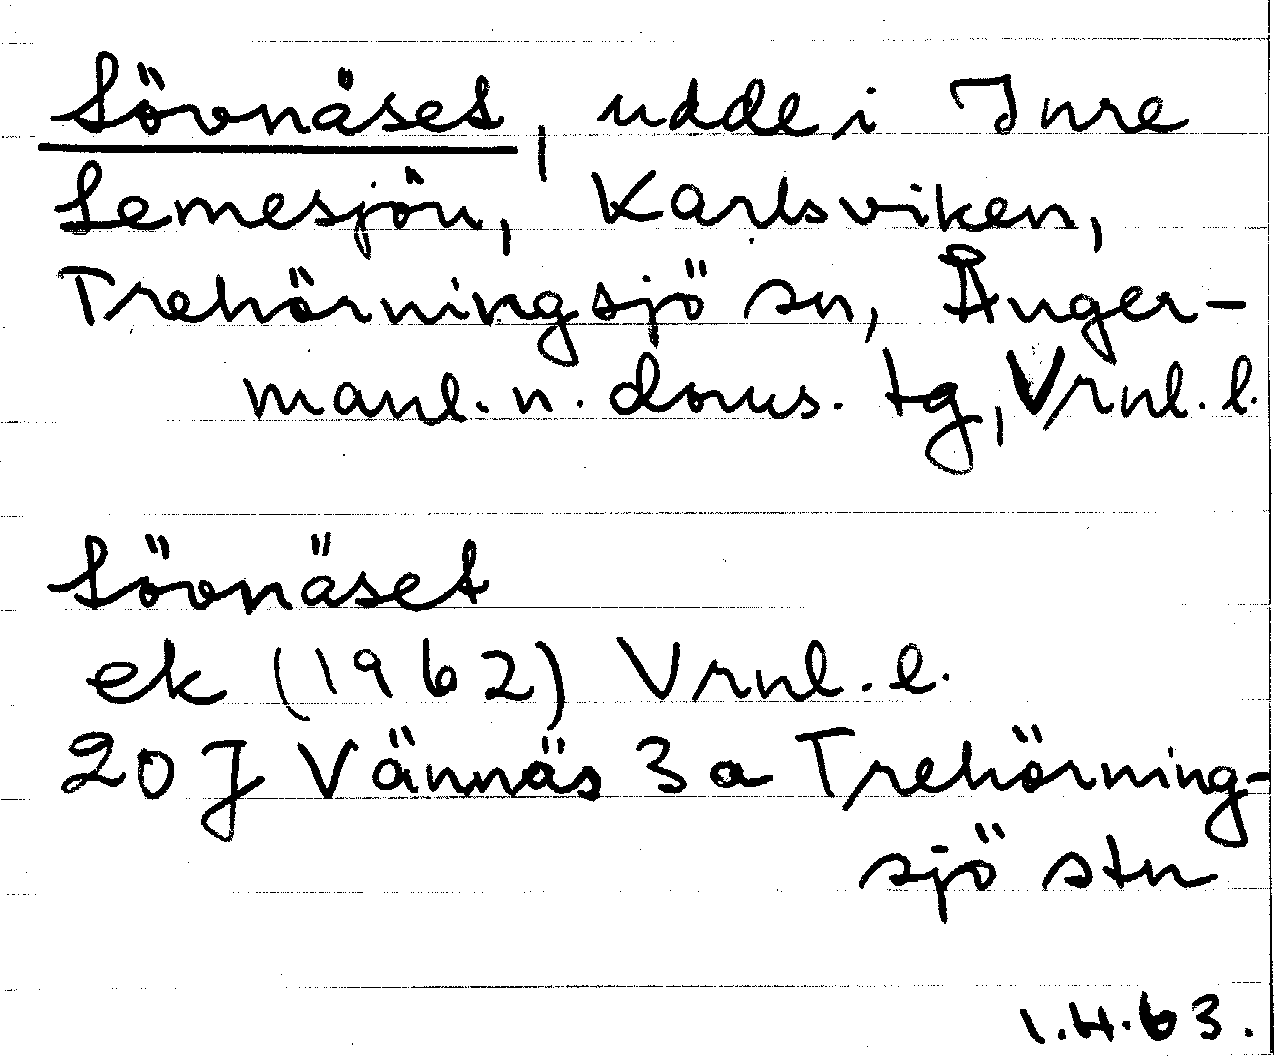 Sövnäset, udde i Inre
Lemesjön, Karlsviken,
Trehörningsjö sn, Ånger-
manl. n. doms. tg, Vrnl. l.
Sövnäset
ek (1962) Vrnl. l.
20 J Vännäs 3 a Trehörning-
sjö stn
1.4.63.